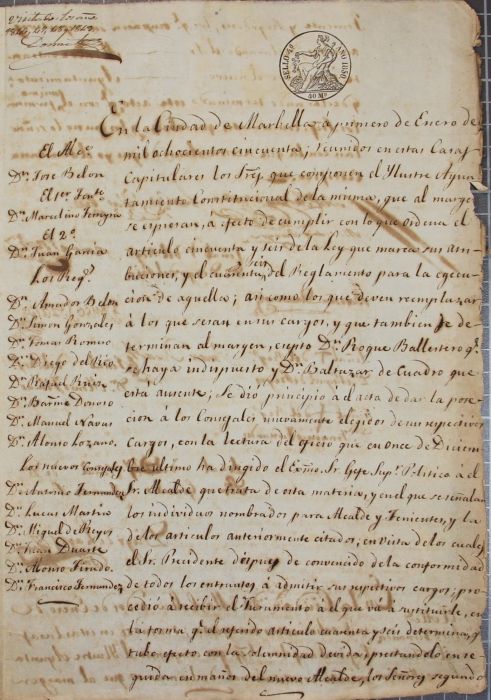 SELLO 4º AÑO 1850
40 Ms
En la Ciudad de Marbella á primero de Enero de
mil ochocientos cincuenta; reunidos en estas Casas
Capitulares los Sres. que componen el Ylustre Ayun
tamiento Constitucional de la misma, que al margen
se espresan, á efecto de cumplir con lo que ordena el
articulo cincuenta y seis de la Ley que marca sus atri
buciones, y el cuarenta y seis del Reglamento para la egecu
cion de aquella; asi como los que deven remplazar
á los que sesan en sus cargos, y que tambien se de
terminan al margen, esepto Dn. Roque Ballestero qe.
se haya indispuesto y Dn. Baltazar de Cuadro que
está ausente; Se dió principio al acta de dar la pose
cion á los Consejales nuevamente elegidos de sus respectivos
Cargos, con la lectura del oficio que en once de Diciem
bre ultimo ha dirigido el Exmo. Sr. Gefe Supr. Politico á el
Sr. Alcalde que trata de esta materia, y en el que se señalan
los individuos nombrados para Alcalde y Tenientes, y la
de los articulos anteriormente citados, en vista de los cuales
el Sr. Precidente despues de convencido de la conformidad
de todos los entrantes á admitir sus respetivos cargos; pro
cedió á recibir el Juramento á el que vá á sustituirle, en
la forma qe. el referido articulo cuarenta y seis determina, qe.
tubo efecto con la solemnidad devida, prestandolo en se
guida en manos del nuevo Alcalde, los Señores segundo
El Alce.
Dn. Jose Belon
El 1er. Tente.
Dn. Marcelino
El 2º
Dn. Juan Garcia
Los Regs.
Dn. Amador Belon
Dn. Simon Gonzales
Dn. Tomas Romero
Dn. Diego del Rio
Dn. Rafael Ruiz
Dn. Barme. Donoso
Dn. Manuel Navas
Dn. Alonso Lozano
Los nuevos Consejales
Dn. Antonio Fernandez
Dn. Lucas Martin
Dn. Miguel de Reyes
Dn. Juan Duarte
Dn. Alonso Tirado
Dn. Francisco Fernandez